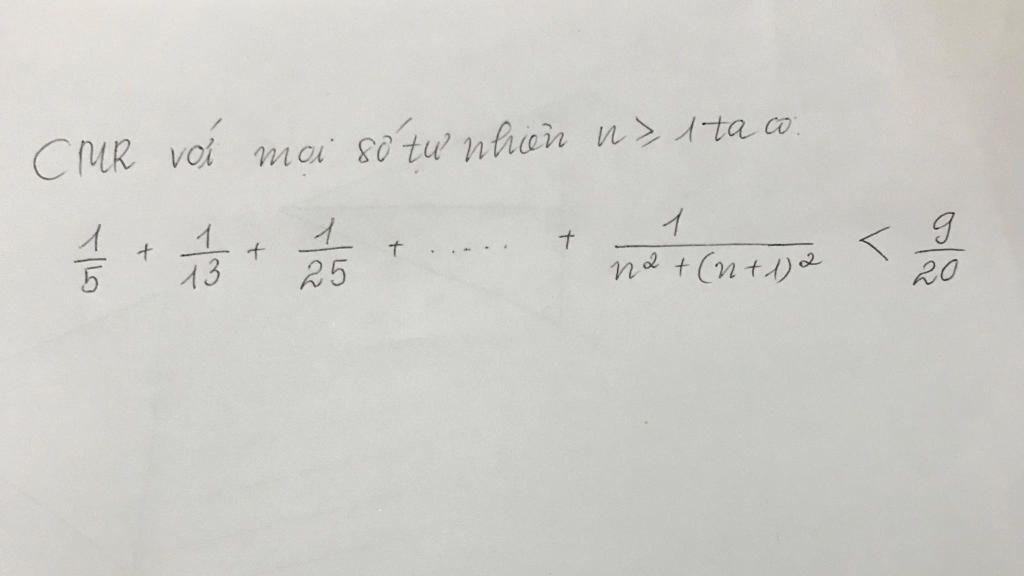 CMR với mọi số tự nhiên n ≥ 1 ta có:
1/5 + 1/13 + 1/25 + ..... + 1/(n² + (n+1)²) < 9/20